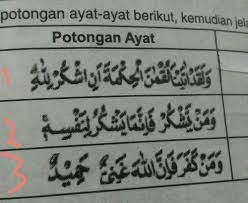 potongan ayat-ayat berikut, kemudian jela
Potongan Ayat
1
وَلَقَدْ اٰتَيْنَا لُقْمٰنَ الْحِكْمَةَ اَنِ اشْكُرْ لِلّٰهِ
2
وَمَنْ يَّشْكُرْ فَاِنَّمَا يَشْكُرُ لِنَفْسِهٖ
3
وَمَنْ كَفَرَ فَاِنَّ اللّٰهَ غَنِيٌّ حَمِيْدٌ